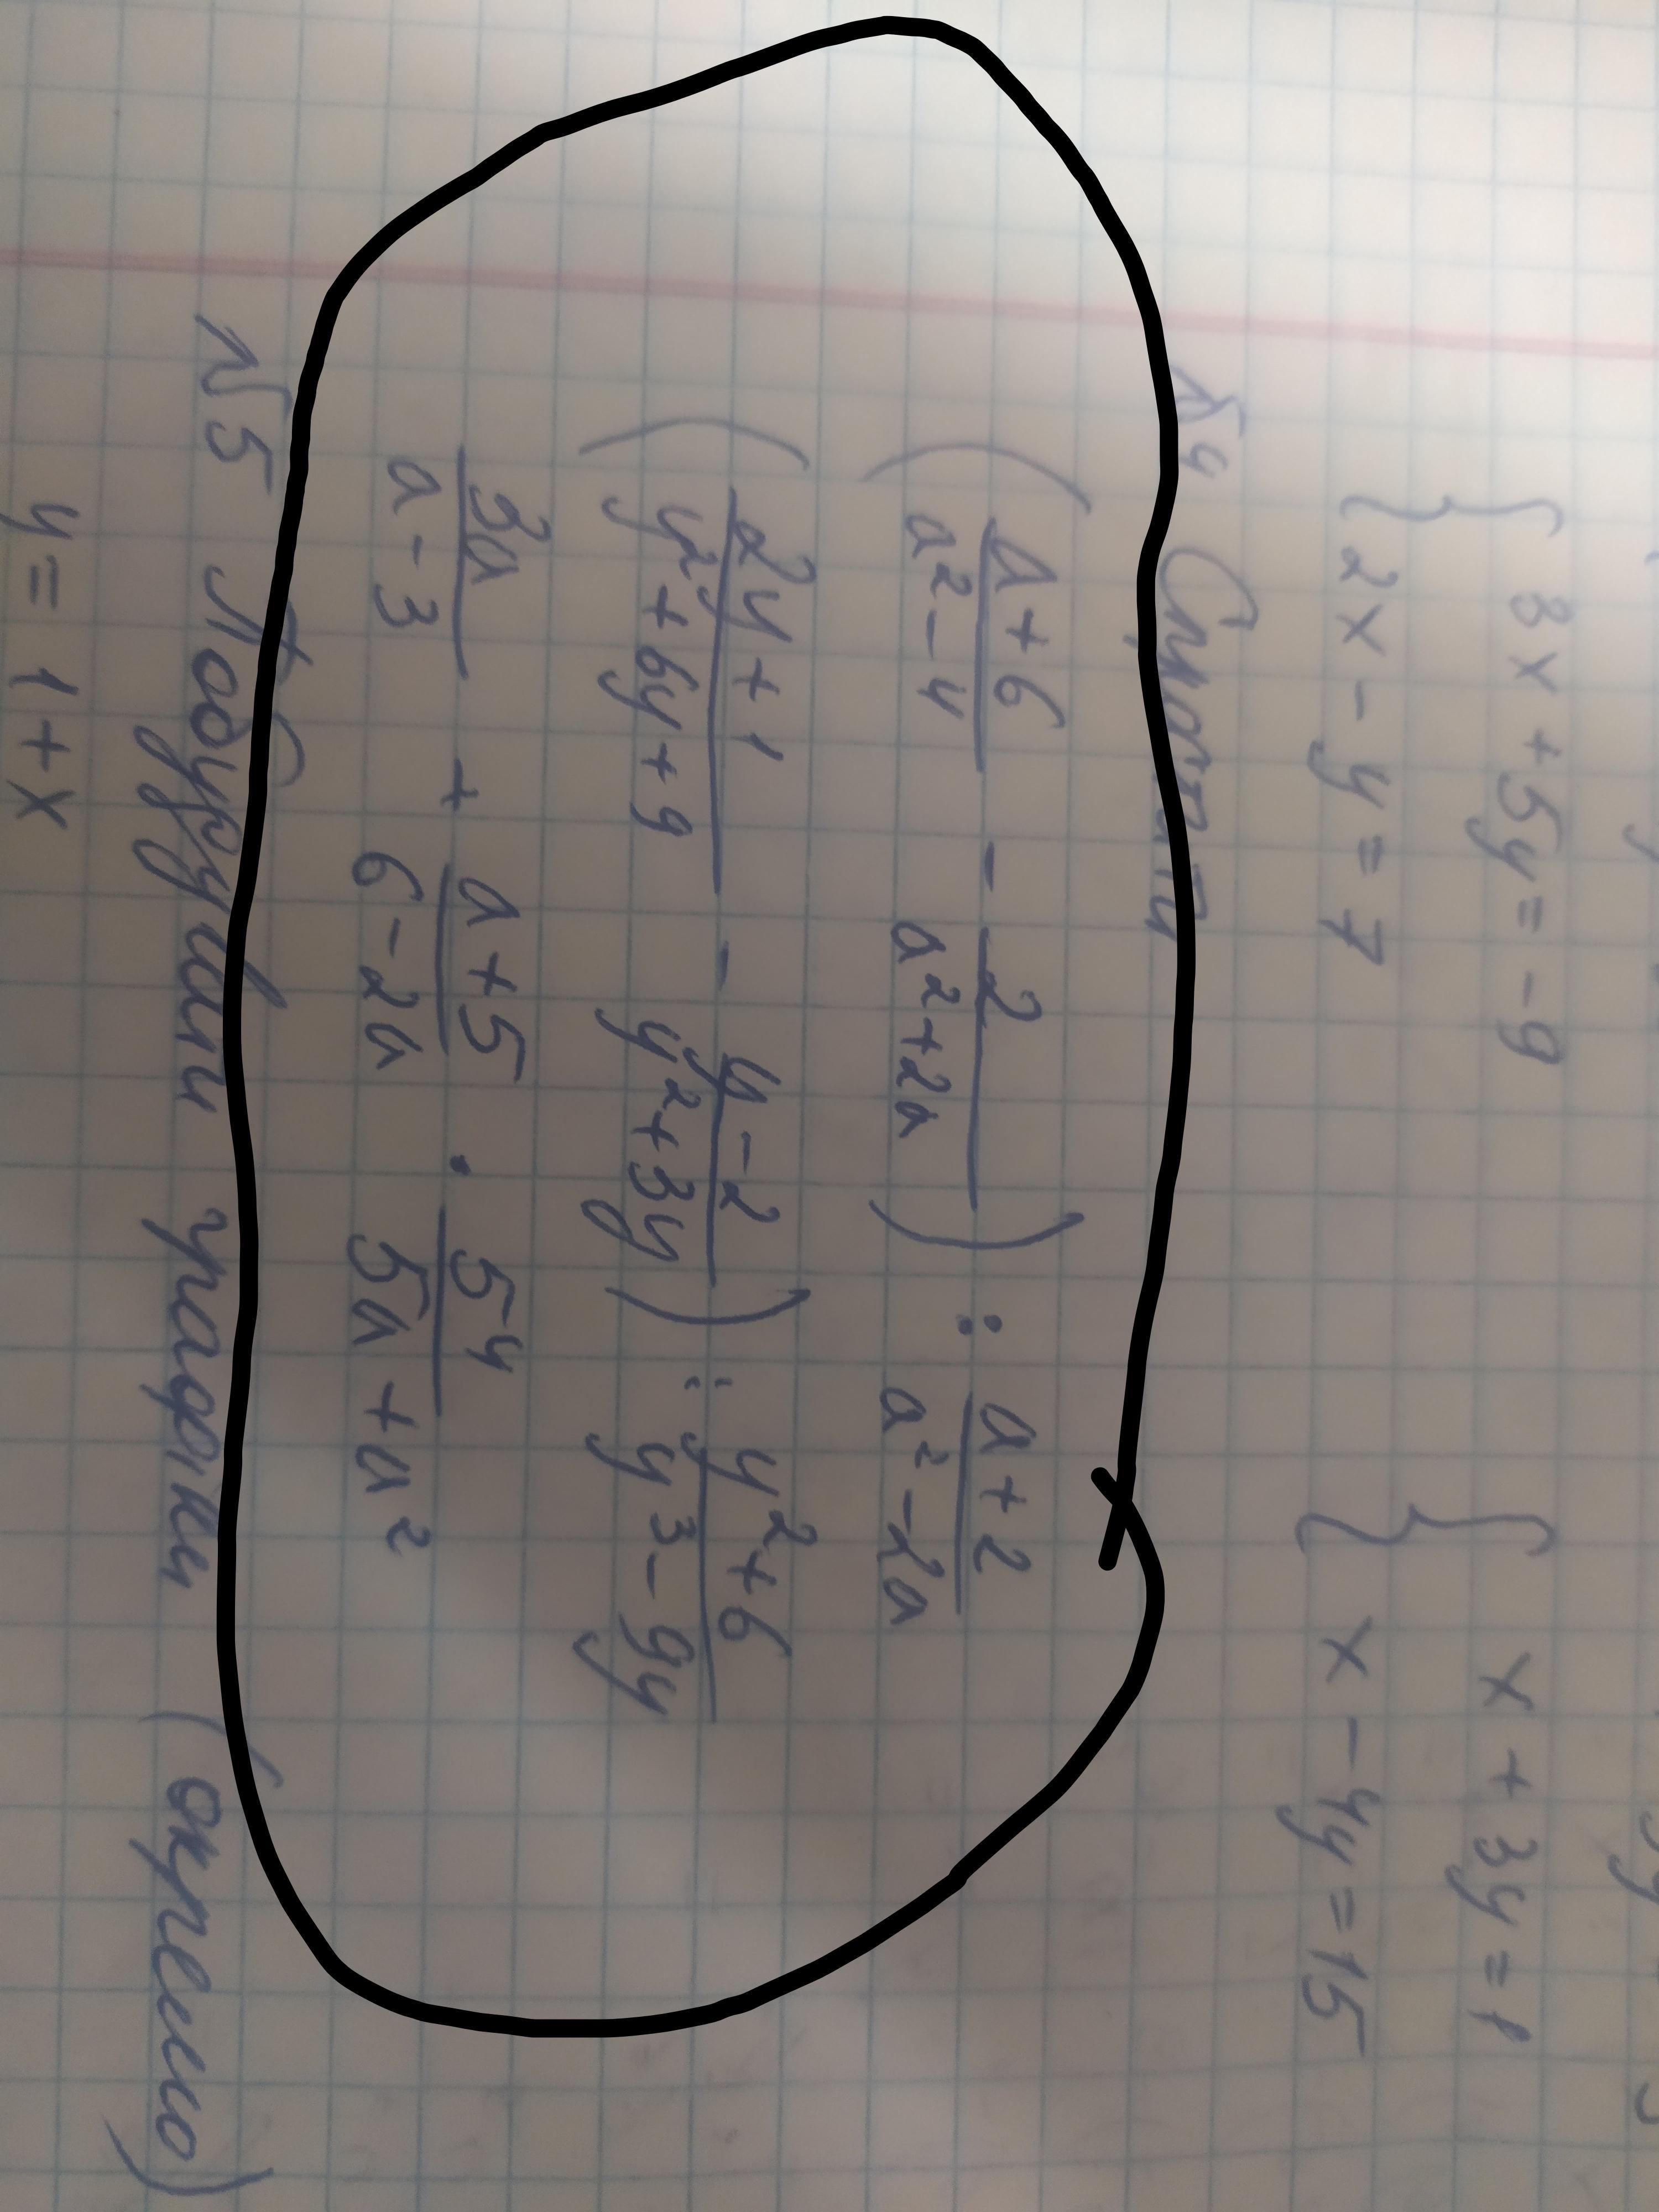 { 3x + 5y = -9
2x - y = 7
{ x + 3y = 1
x - 4y = 15
№4 Спростити
(\frac{a+6}{a²-4} - \frac{2}{a²+2a}) : \frac{a+2}{a²-2a}
(\frac{2y+1}{y²+6y+9} - \frac{y-2}{y²+3y}) : \frac{y²+6}{y³-9y}
\frac{3a}{a-3} + \frac{a+5}{6-2a} · \frac{54}{5a+a²}
№5 Побудувати графіки (окремо)
y = 1 + x